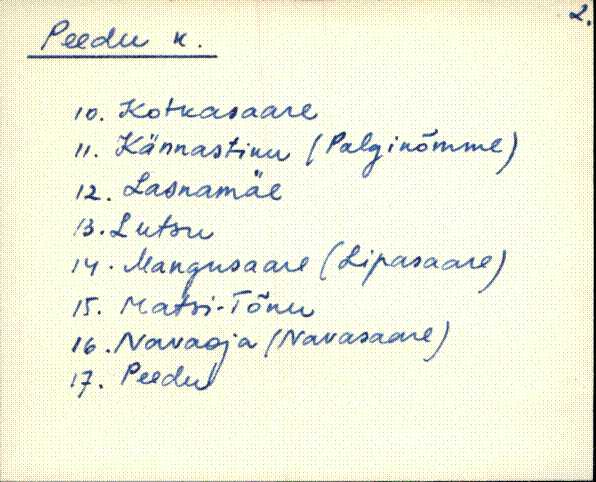 2.
Peedu k.
10. Kotkasaare
11. Kännastinu (Palginõmme)
12. Lasnamäe
13. Lutsu
14. Mangusaare (Lipasaare)
15. Matsi-Tõnu
16. Navaoja (Navasaare)
17. Peedu